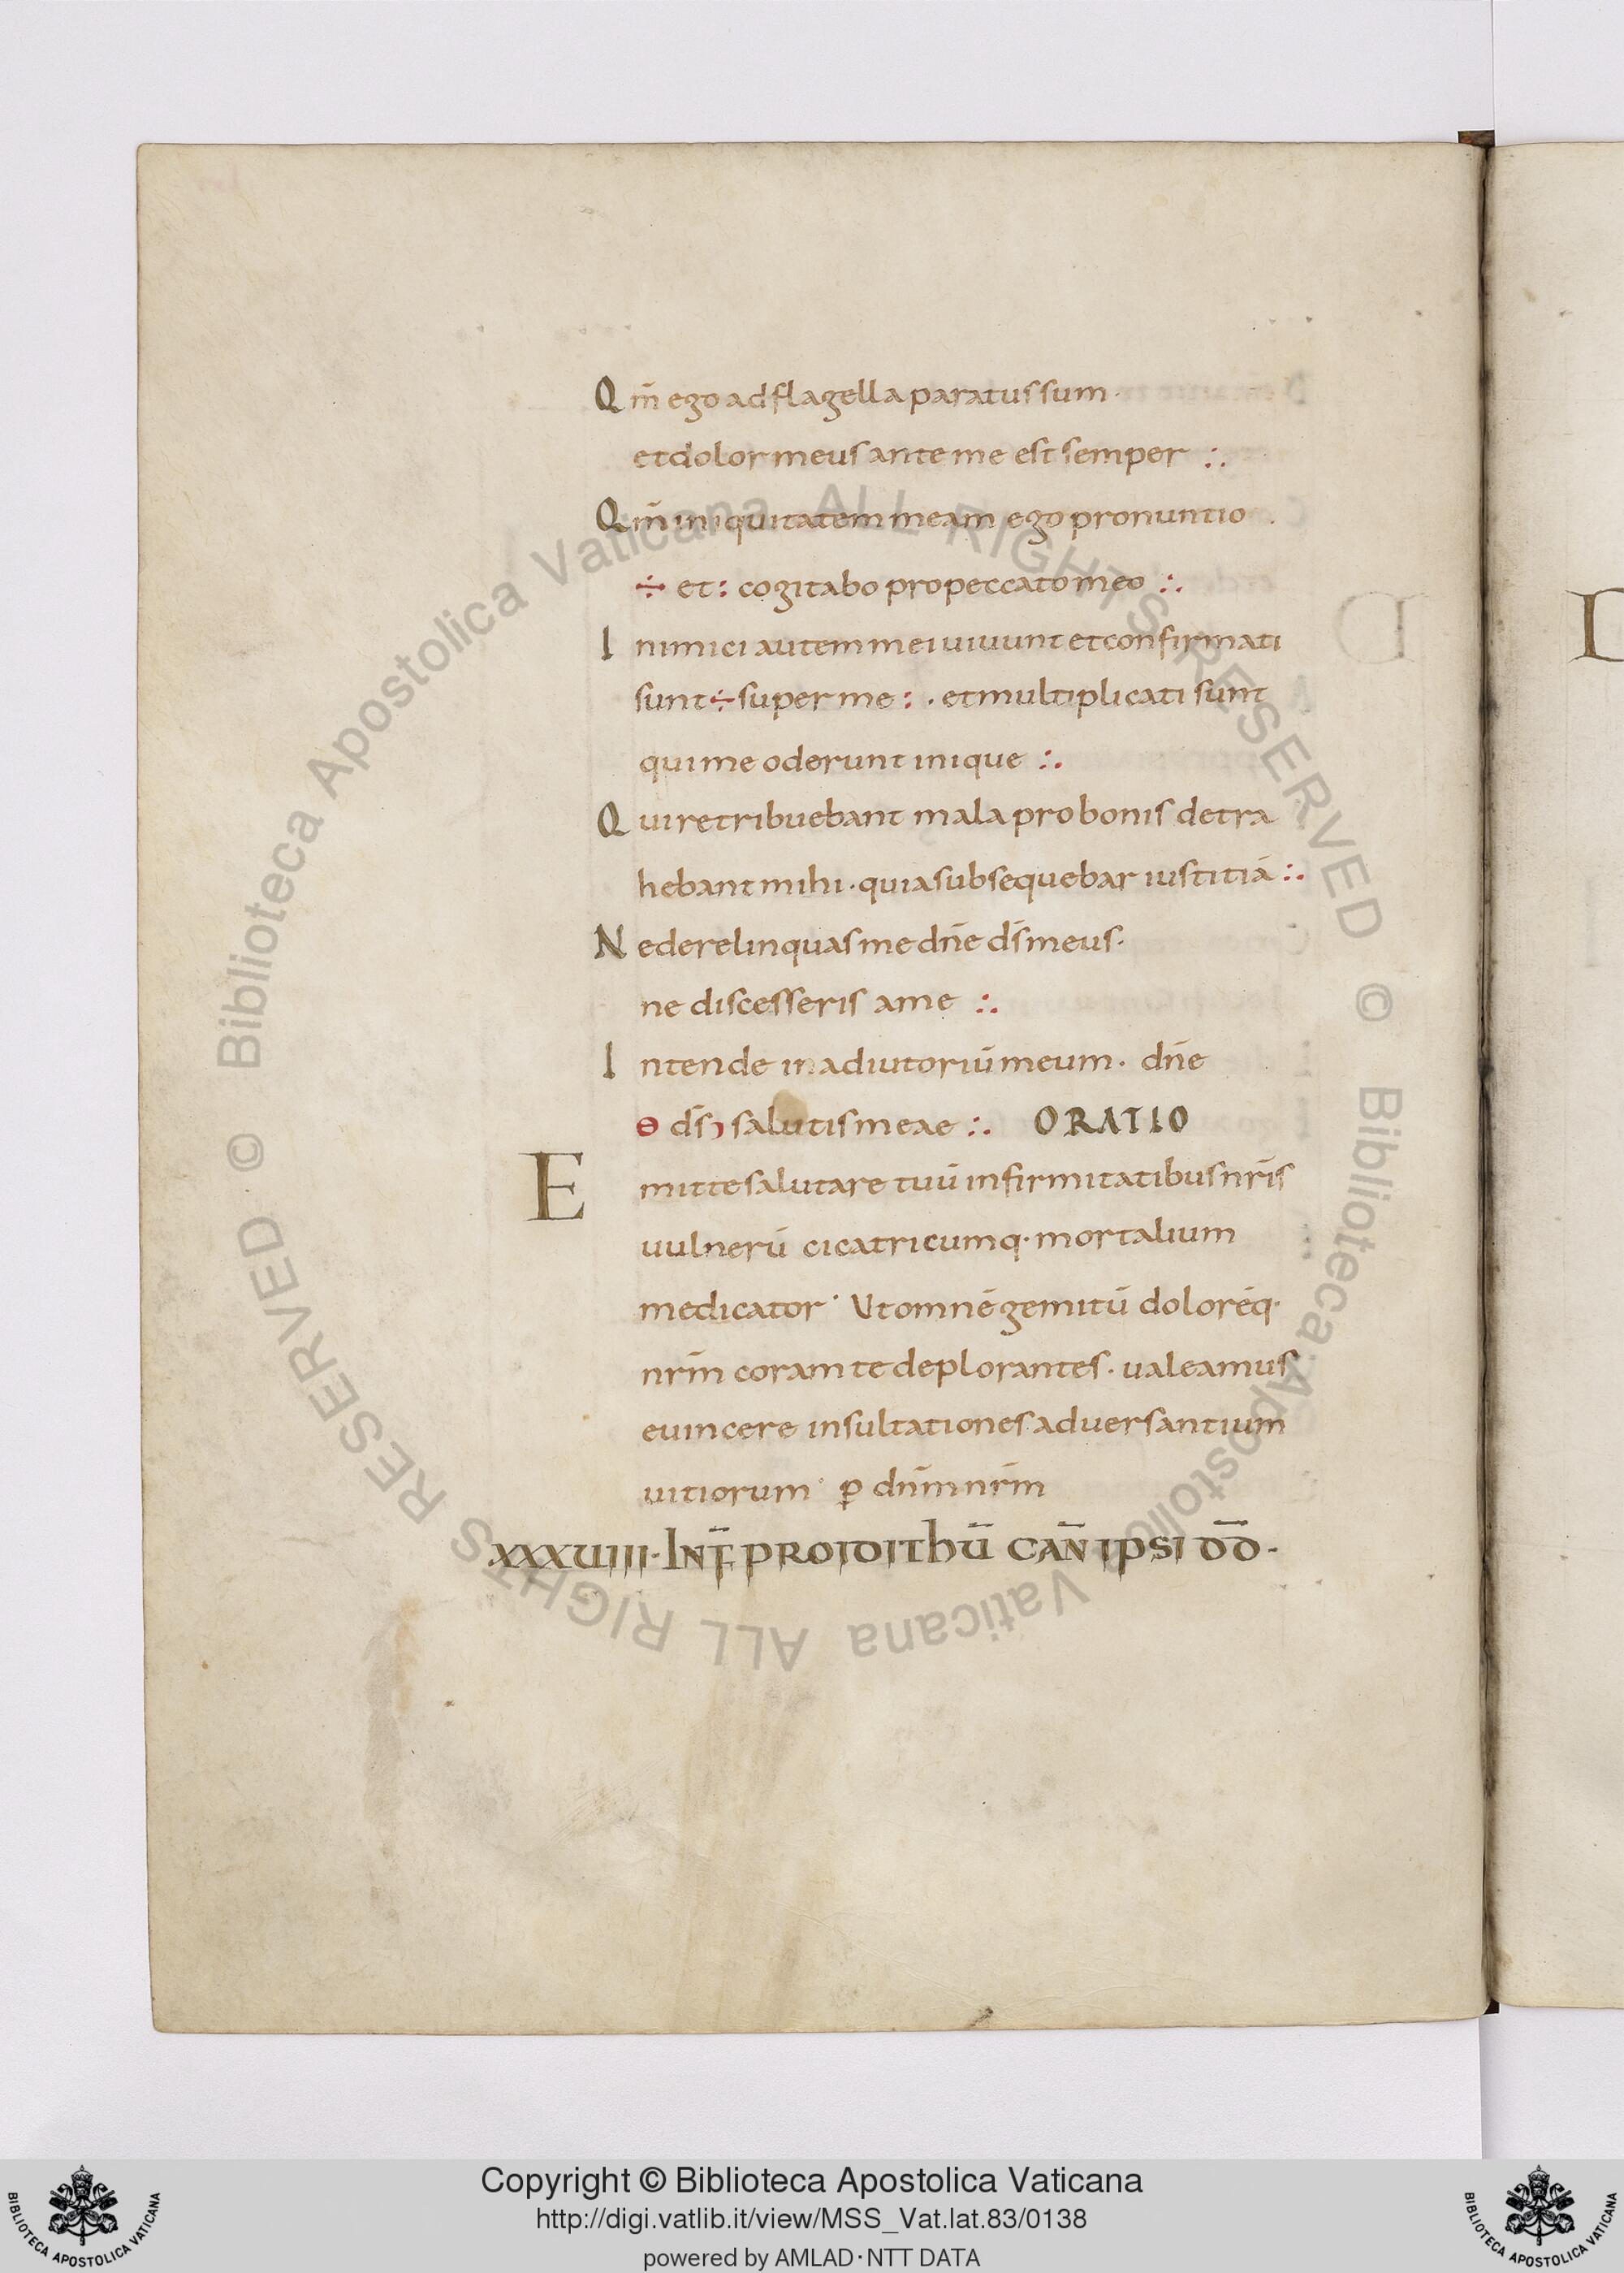 Qm̄ ego ad flagella paratus sum·
et dolor meus ante me est semper :.
Qm̄ iniquitatem meam ego pronuntio .
÷ et : cogitabo pro peccato meo :.
Inimici autem mei uiuunt et confirmati
sunt ÷ super me : · et multiplicati sunt
qui me oderunt inique :.
Qui retribuebant mala pro bonis detra
hebant mihi · quia subsequebar iustitiā :.
Ne derelinquas me dn̄e ds̄ meus·
ne discesseris a me :.
Intende in adiutoriū meum · dn̄e
ɵ ds̄ salutis meae :. ORATIO
Emitte salutare tuū infirmitatibus nr̄is
uulnerū cicatricumq· mortalium
medicator· Ut omnē gemitū dolorēq·
nr̄m coram te deplorantes · ualeamus
euincere insultationes aduersantium
uitiorum · ꝑ dn̄m nr̄m
XXXUIIII · INF̄ PRO IDITHŪ CAN̄ IPSI DD̄ ·
© Biblioteca Apostolica Vaticana ALL RIGHTS RESERVED © Biblioteca Apostolica Vaticana ALL RIGHTS RESERVED
Copyright © Biblioteca Apostolica Vaticana
http://digi.vatlib.it/view/MSS_Vat.lat.83/0138
powered by AMLAD·NTT DATA
BIBLIOTECA APOSTOLICA VATICANA
BIBLIOTECA APOSTOLICA VATICANA